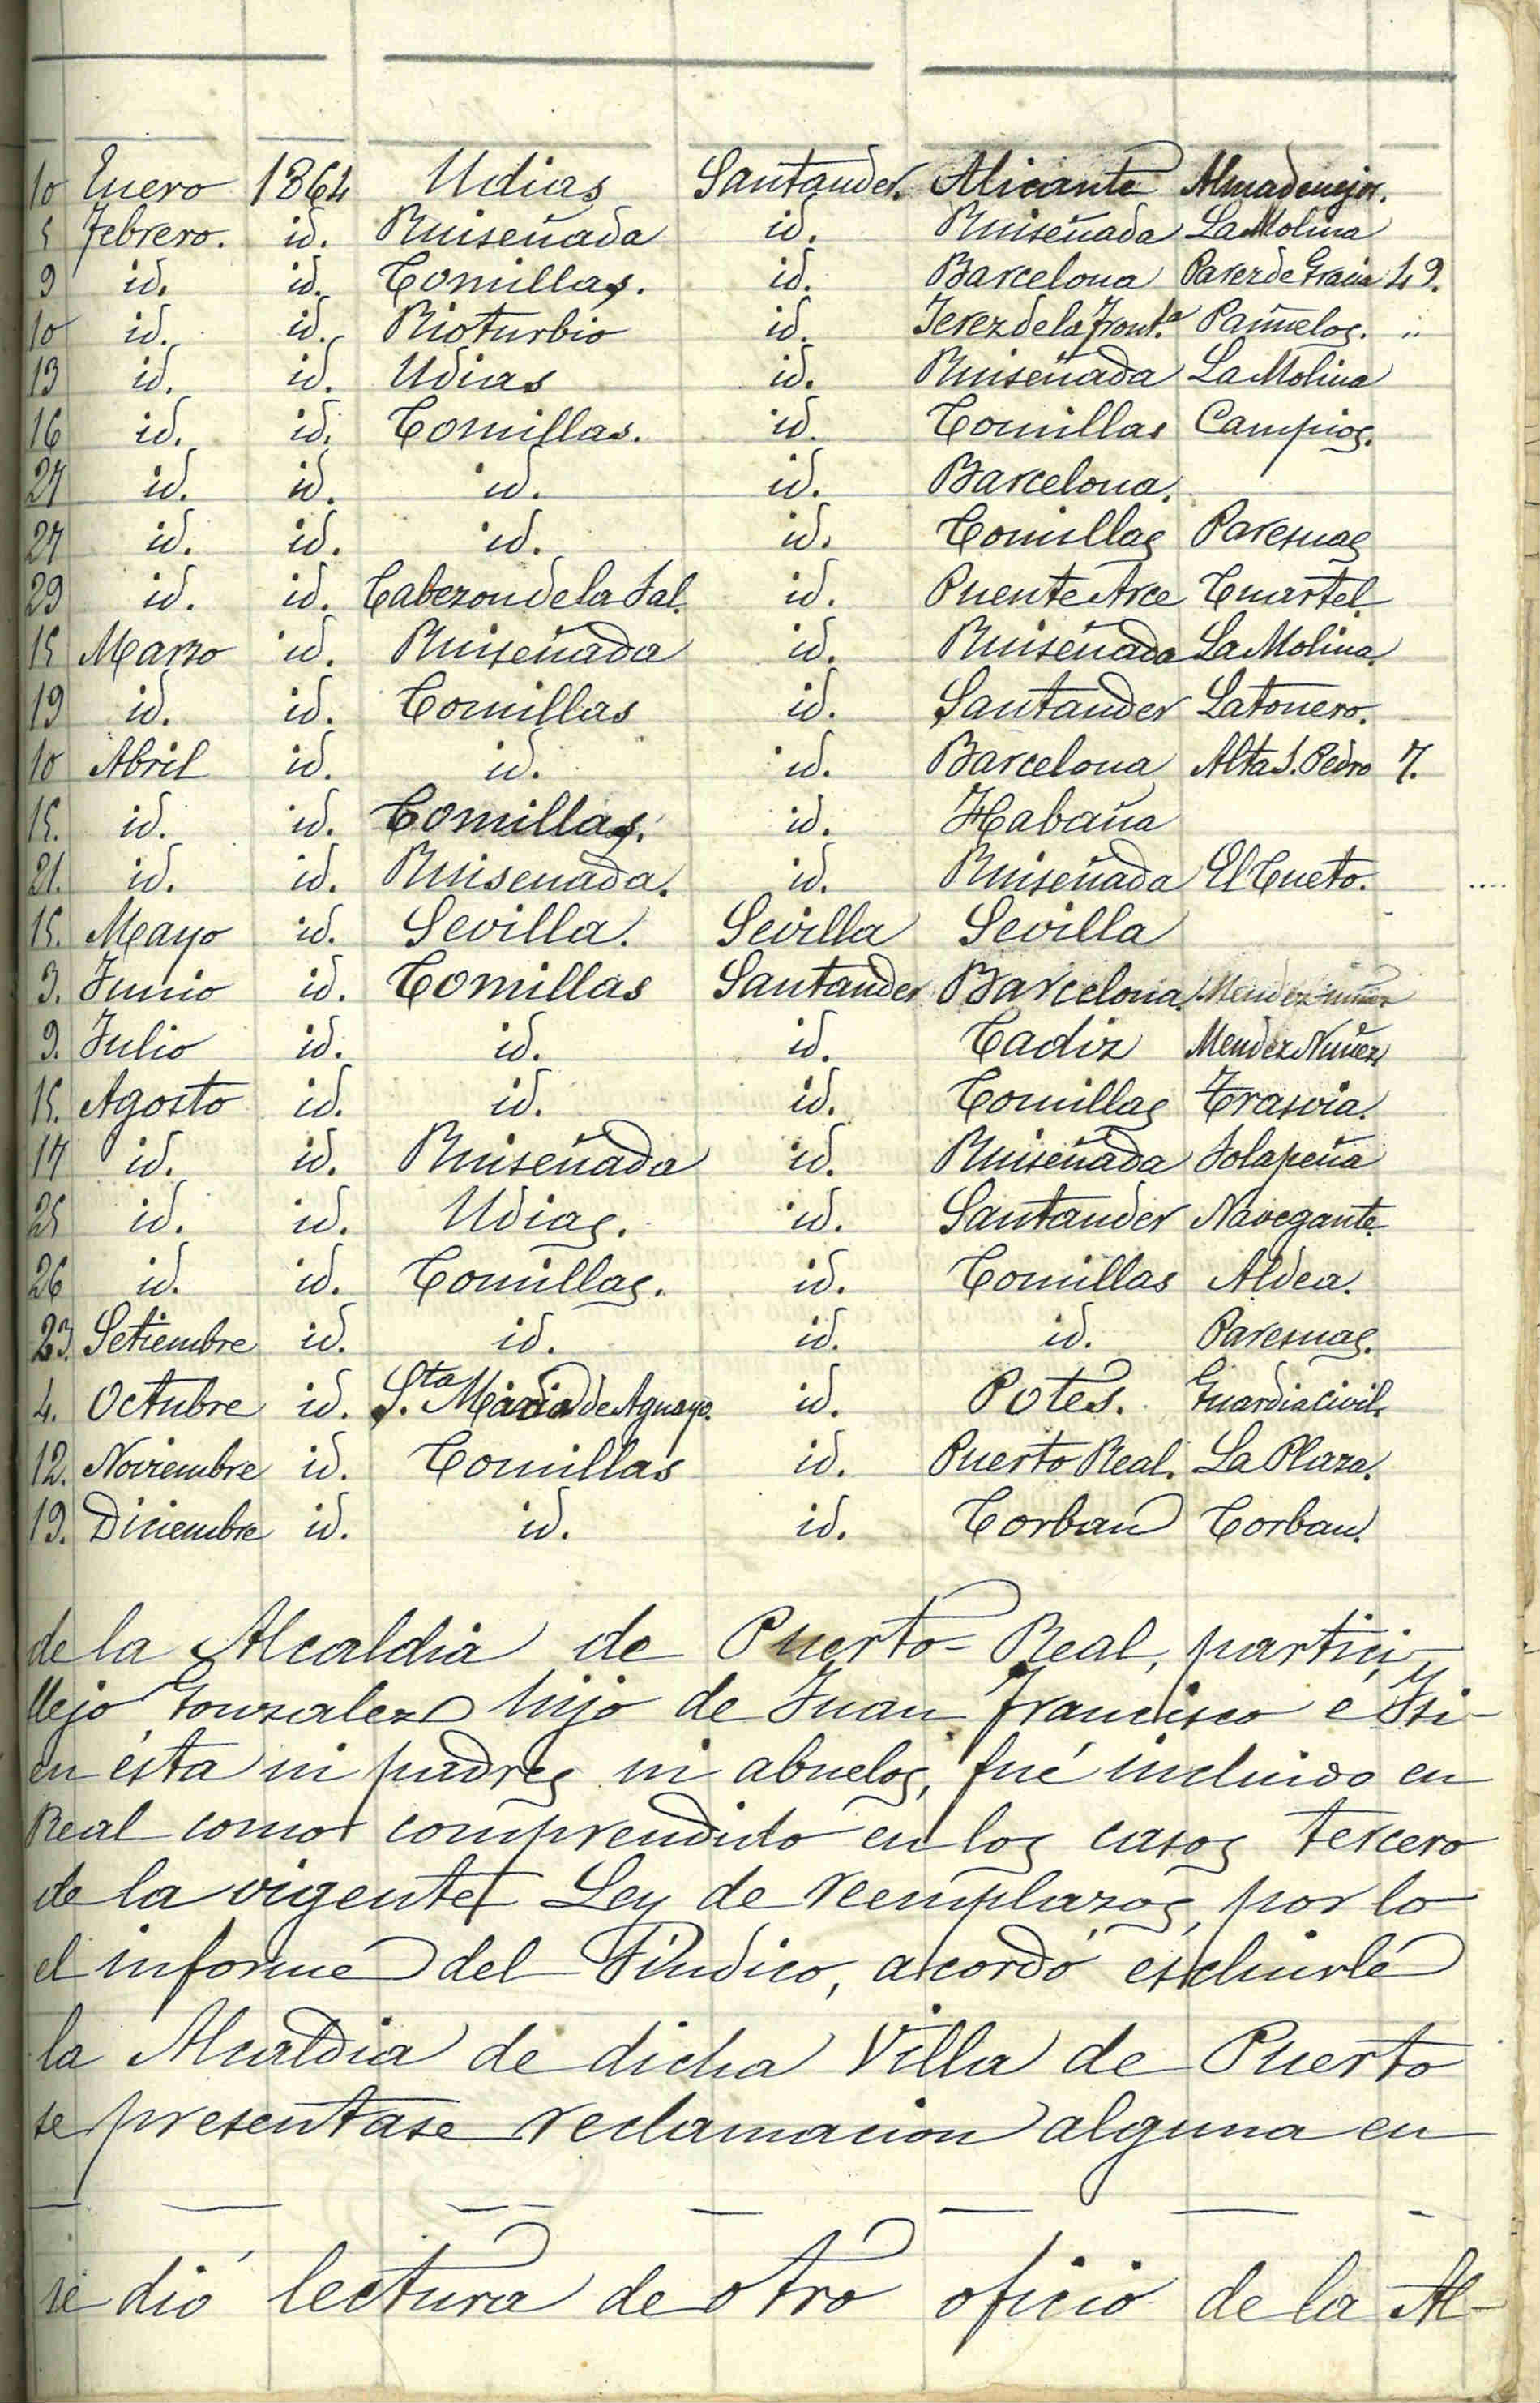 10 Enero 1864 Udias Santander. Alicante Almadenejos.
5 Febrero. id. Ruiseñada id. Ruiseñada La Molina
9 id. id. Comillas. id. Barcelona Paseo de Gracia 49.
10 id. id. Rioturbio id. Jerez de la Front.ª Pañuelos. "
13 id. id. Udias id. Ruiseñada La Molina
16 id. id. Comillas. id. Comillas Campios.
27 id. id. id. id. Barcelona.
27 id. id. id. id. Comillas Paresnas
29 id. id. Cabezon de la Sal. id. Puente Arce Cuartel.
15 Marzo id. Ruiseñada id. Ruiseñada La Molina.
19 id. id. Comillas id. Santander Latonero.
10 Abril id. id. id. Barcelona Alta S. Pedro 7.
15. id. id. Comillas. id. Habaña
21. id. id. Ruisenada. id. Ruiseñada El Cueto. ....
15. Mayo id. Sevilla. Sevilla Sevilla
3. Junio id. Comillas Santander Barcelona. Mendez nuñez
9. Julio id. id. id. Cadiz Mendez Nuñez
15. Agosto id. id. id. Comillas Trasvia.
17 id. id. Ruiseñada id. Ruiseñada Solapeña
25 id. id. Udias. id. Santander Navegante.
26 id. id. Comillas. id. Comillas Aldea.
23. Setiembre id. id. id. id. Paresnas.
4. Octubre id. Sta. Maria de Aguayo. id. Potes. Guardia Civil.
12. Noviembre id. Comillas id. Puerto Real. La Plaza.
19. Diciembre id. id. id. Corban Corban.
de la Alcaldia de Puerto-Real, partici-
llejo Gonzalez hijo de Juan Francisco é Isi-
en ésta ni padres ni abuelos, fué incluido en
Real como comprendido en los casos tercero
de la vigente Ley de reemplazos, por lo
el informe del Síndico, acordó escluirle
la Alcaldia de dicha Villa de Puerto
se presentase reclamacion alguna en
se dió lectura de otro oficio de la Al-